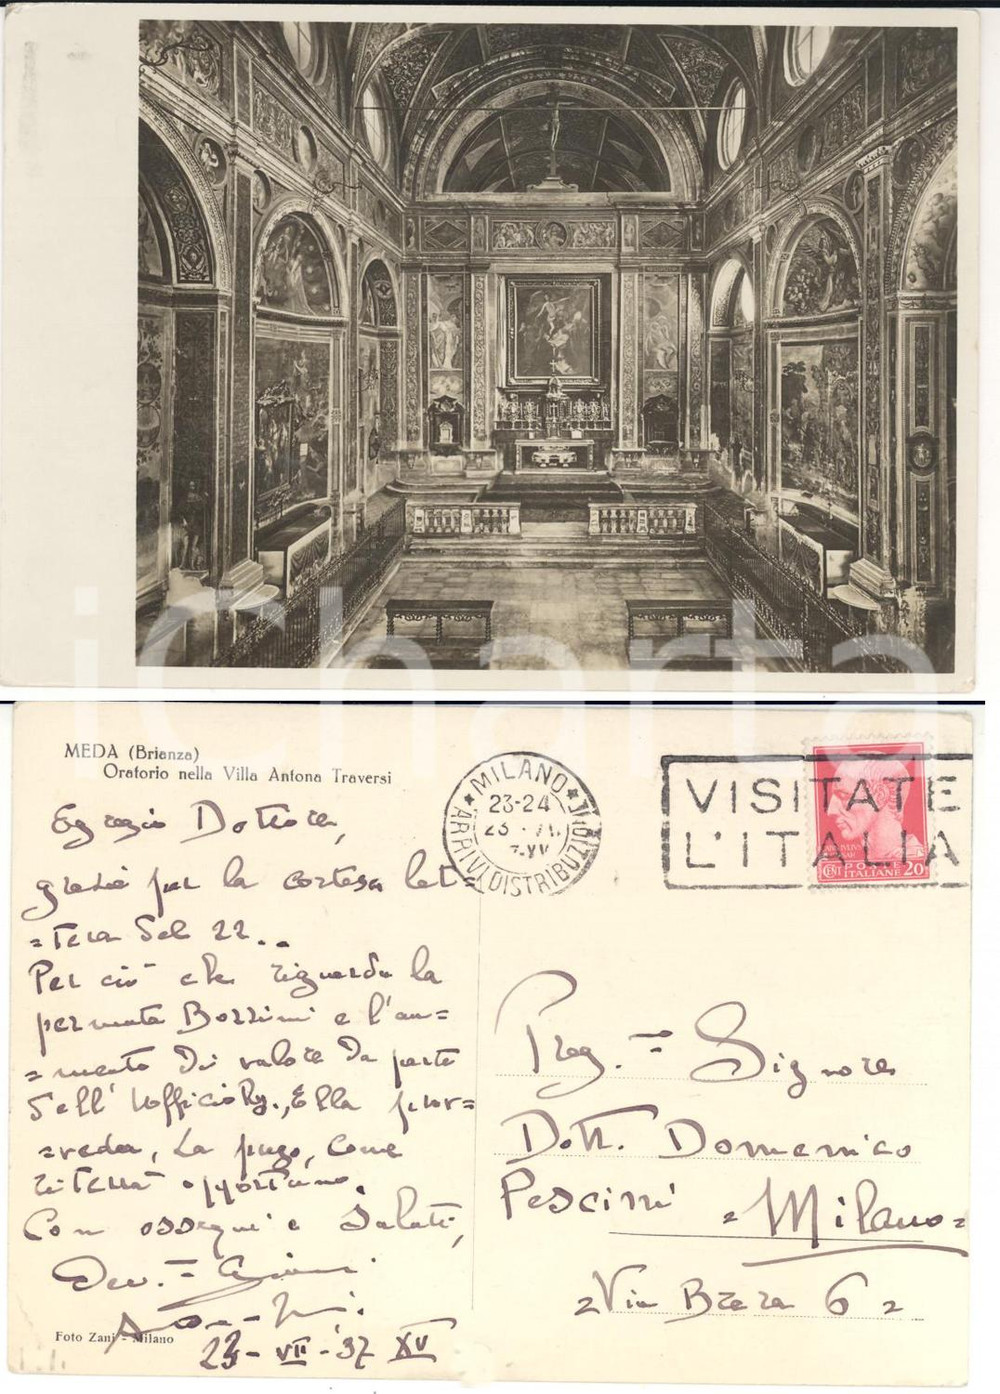 iCharta
MEDA (Brianza)
Oratorio nella Villa Antona Traversi
MILANO
23-24
XV
ARRIVI DISTRIBUZIONE
VISITATE
L'ITALIA
CENT POSTE ITALIANE 20
Egregio Dottore,
grazie per la cortese let=
=tera del 22..
Per ciò che riguarda la
permuta Bozzini e l'au=
=mento di valore da parte
dell' Ufficio Rg., Ella prov=
=veda, La prego, come
riterrà opportuno.
Con ossequi e saluti,
Dev.
23-VII-'37 XV
Foto Zani - Milano
Preg. Signore
Dott. Domenico
Pescini
=Milano=
=Via Brera 6=